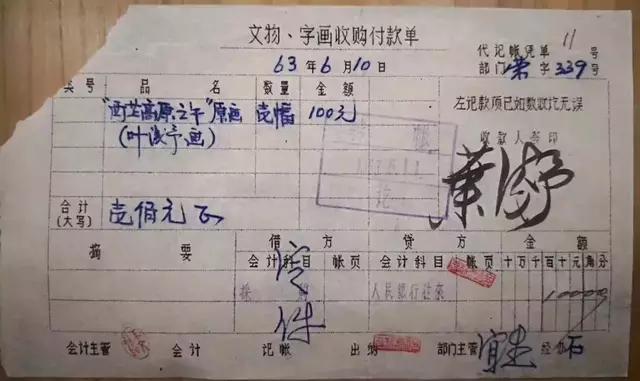 文物、字画收购付款单
代记帐凭单 11 号
63年6月10日
部门 荣 字339号
类号 品名 数量 金额
"西芒高原之午"原画 壹幅 100元
(叶浅予画)
左记款项已如数收讫无误
收款人签印
叶浅予
合计(大写) 壹佰元正
摘要 借方 贷方 金额
会计科目 帐页 会计科目 帐页 十万千百十元角分
人民银行往来 10000
会计主管 会计 记帐 出纳 部门主管 经办 石